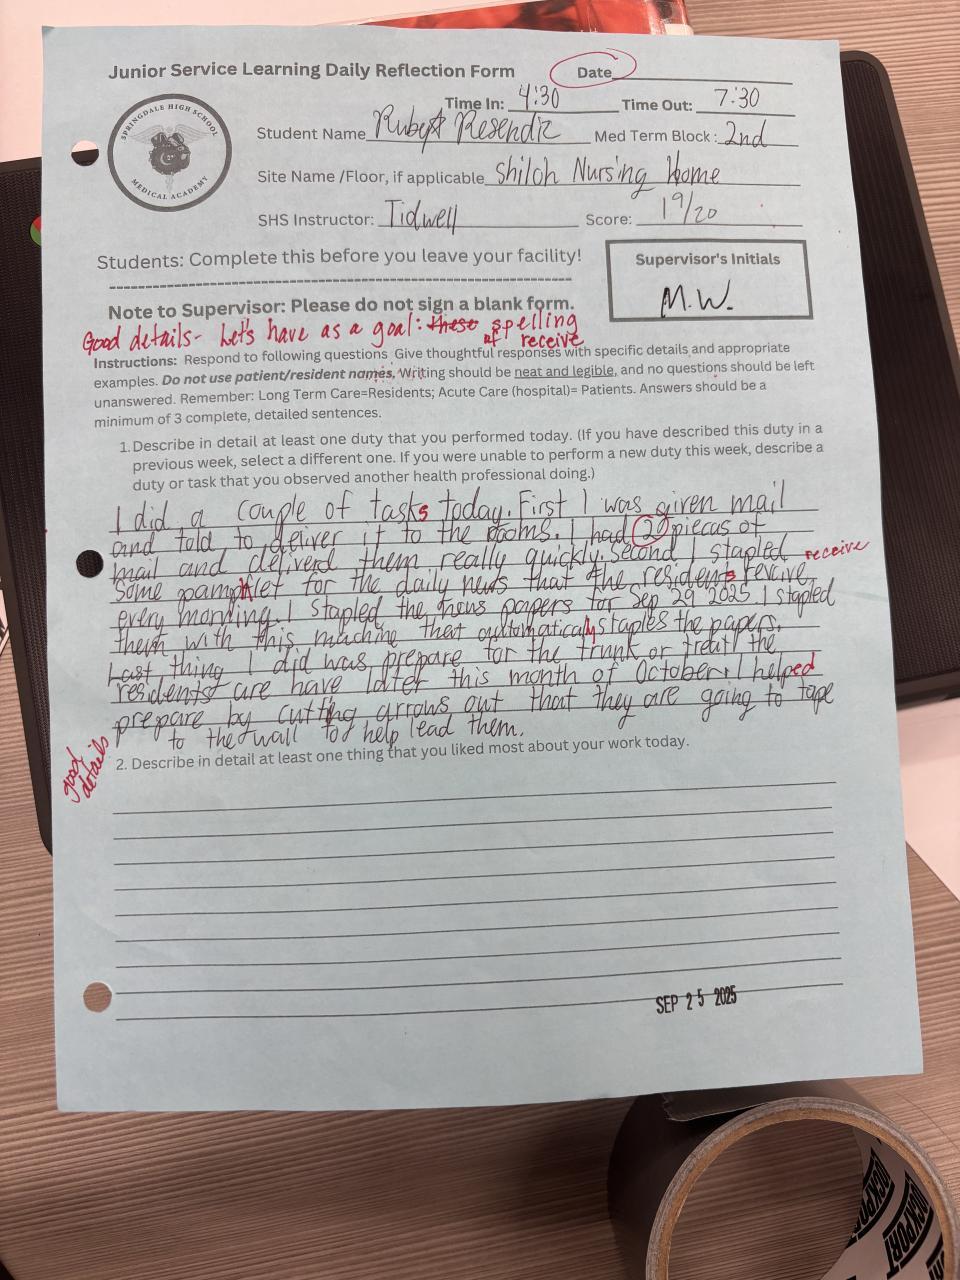 Junior Service Learning Daily Reflection Form Date
Time In: 4:30 Time Out: 7:30
Student Name Ruby Resendiz Med Term Block: 2nd
Site Name /Floor, if applicable Shiloh Nursing Home
SHS Instructor: Tidwell Score: 19/20
SPRINGDALE HIGH SCHOOL
MEDICAL ACADEMY
Students: Complete this before you leave your facility!
Supervisor's Initials
M.W.
Note to Supervisor: Please do not sign a blank form.
Good details- Let's have as a goal: these spelling
of receive
Instructions: Respond to following questions Give thoughtful responses with specific details and appropriate
examples. Do not use patient/resident names. Writing should be neat and legible, and no questions should be left
unanswered. Remember: Long Term Care=Residents; Acute Care (hospital)= Patients. Answers should be a
minimum of 3 complete, detailed sentences.
1. Describe in detail at least one duty that you performed today. (If you have described this duty in a
previous week, select a different one. If you were unable to perform a new duty this week, describe a
duty or task that you observed another health professional doing.)
I did a couple of tasks today. First I was given mail
and told to deliver it to the rooms. I had 20 piecas of
mail and deliverd them really quickly. Second I stapled receive
some pamphlet for the daily news that the residents revcive
every morning. I stapled the news papers for Sep 29 2025. I stapled
them with this machine that automatically staples the papers.
Last thing I did was prepare for the trunk or treat the
residents are have later this month of October. I helped
prepare by cutting arrows out that they are going to tape
to the wall to help lead them.
good
details
2. Describe in detail at least one thing that you liked most about your work today.
SEP 25 2025
DUCK